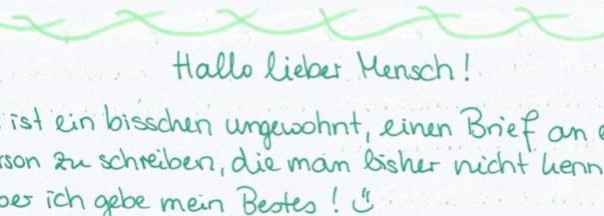 Hallo lieber Mensch!
ist ein bisschen ungewohnt, einen Brief an
rson zu schreiben, die man bisher nicht kenn
ber ich gebe mein Bestes!